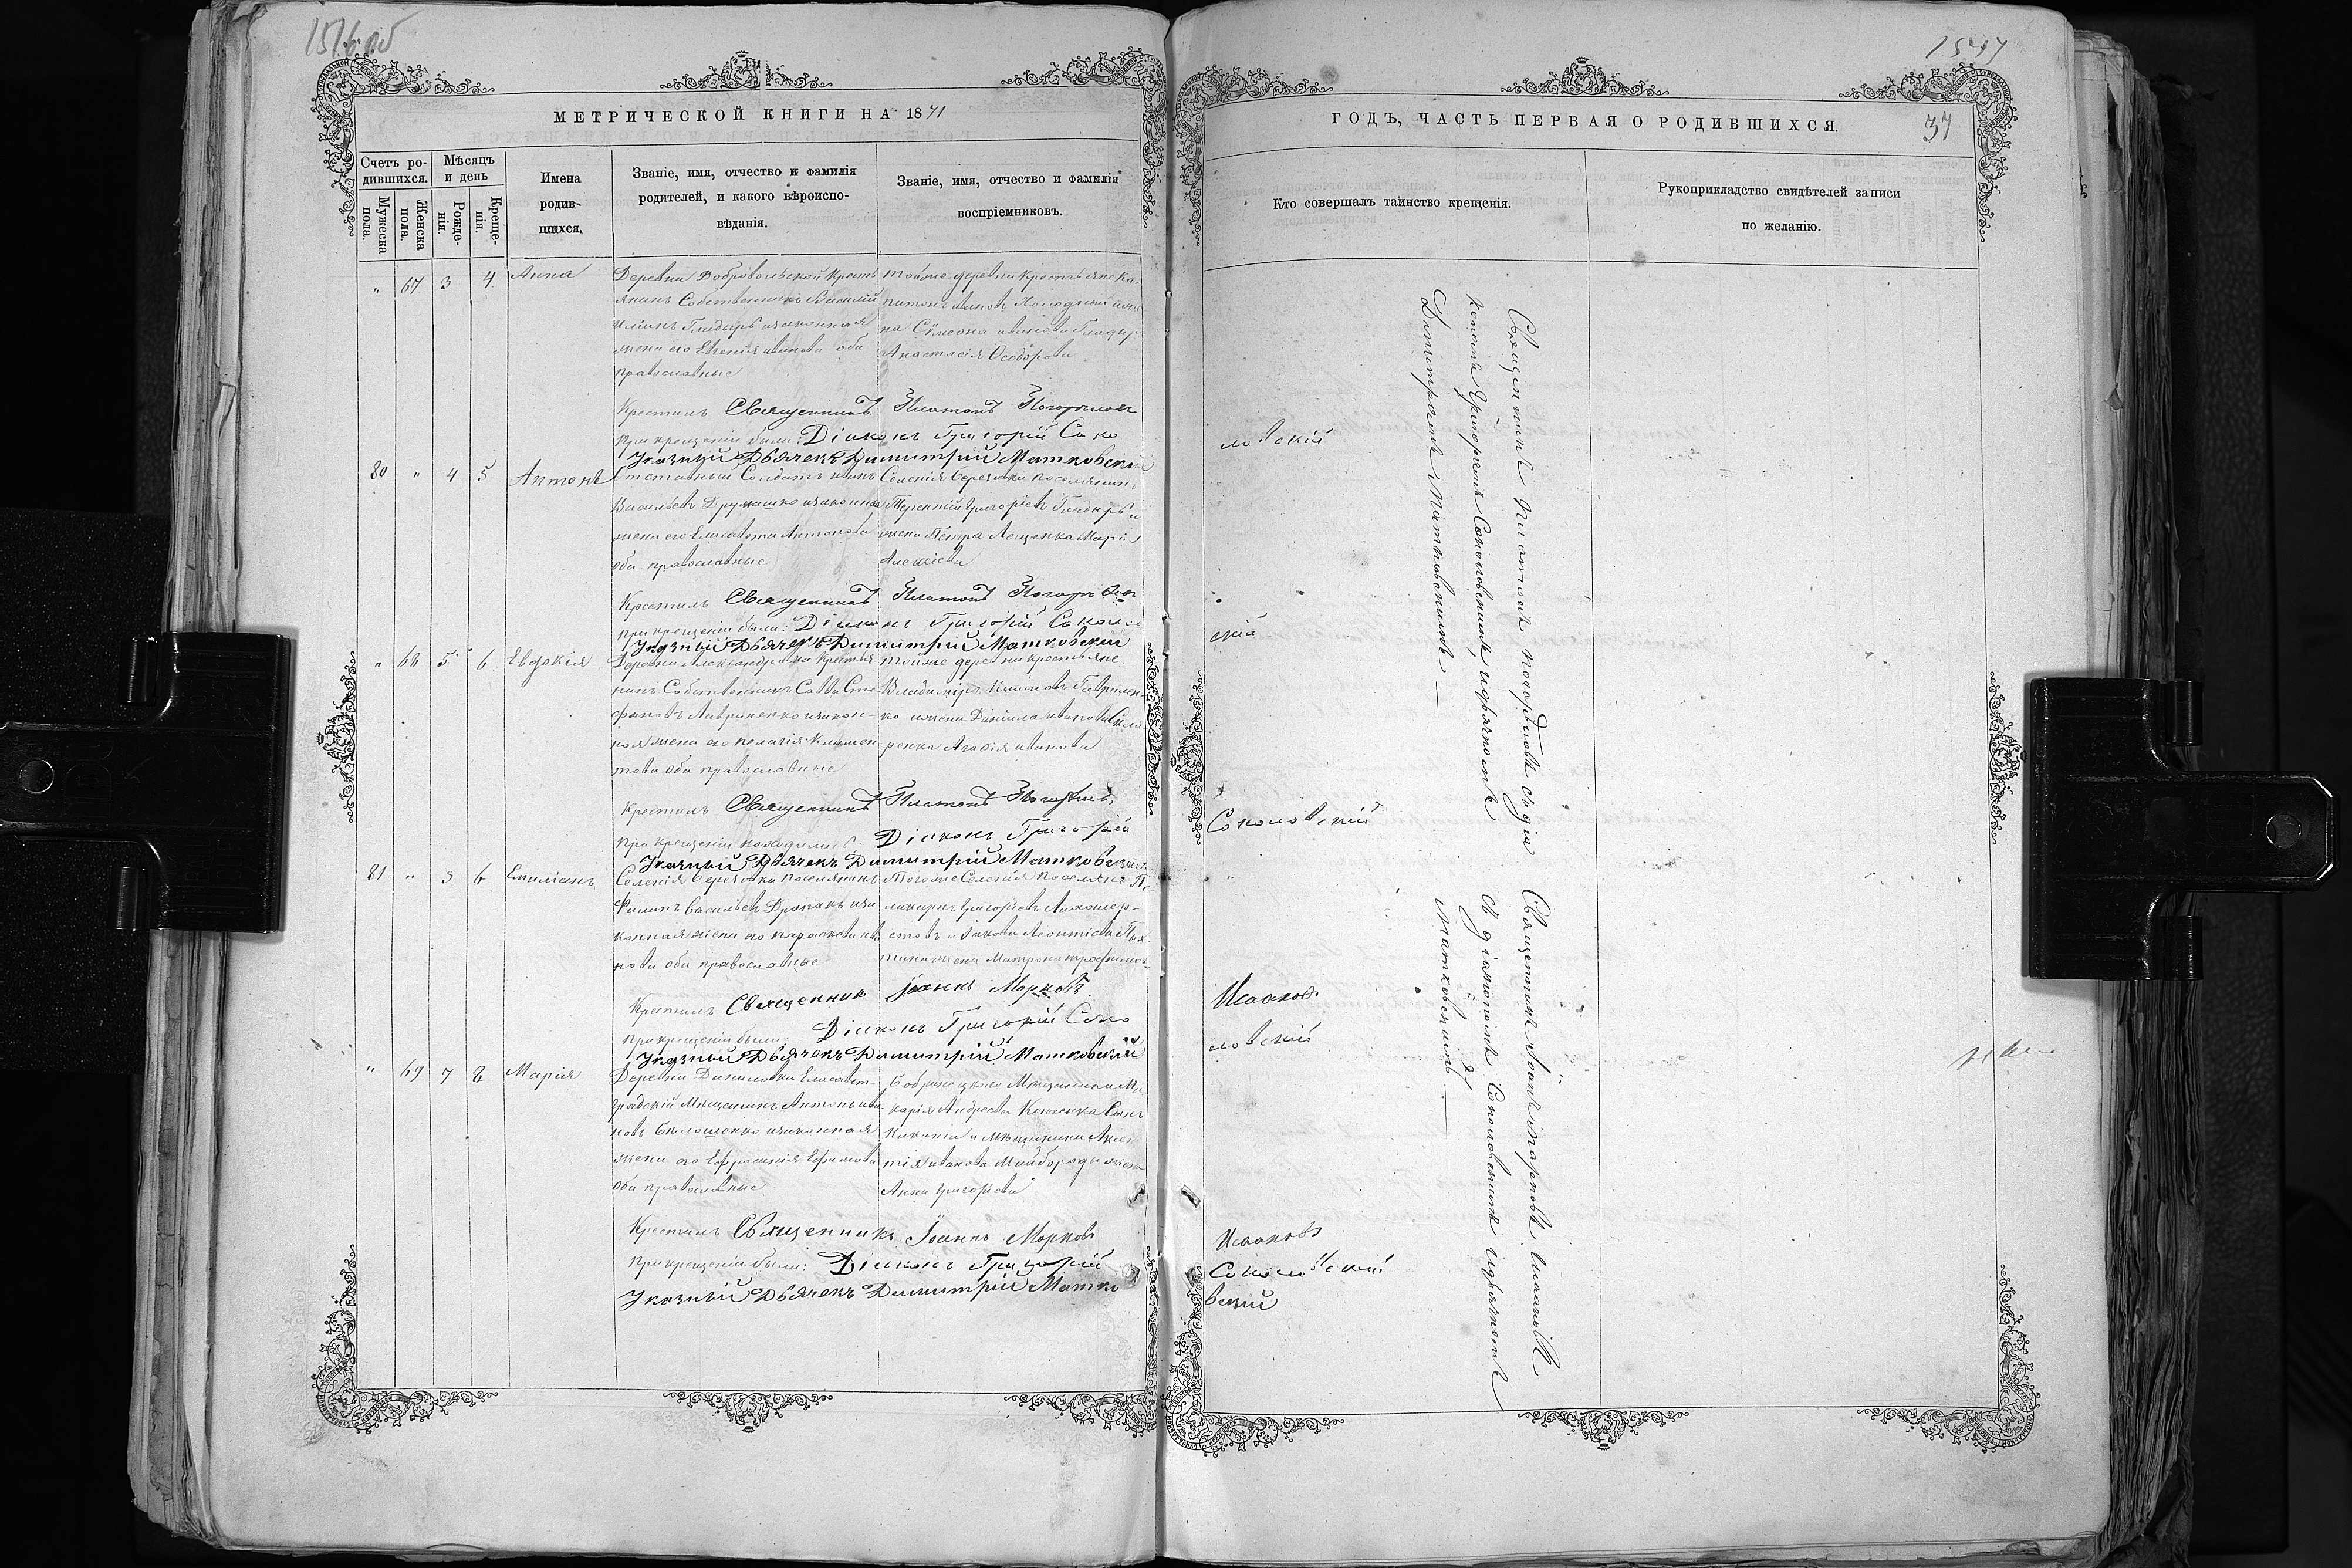 1516 об
МЕТРИЧЕСКОЙ КНИГИ НА 1871
Счетъ ро-
дившихся.
Мѣсяцъ
и день
Мужеска
пола.
Женска
пола.
Рожде-
нія.
Креще-
нія.
Имена
родив-
шихся.
Званіе, имя, отчество и фамилія
родителей, и какого вѣроиспо-
вѣданія.
Званіе, имя, отчество и фамилія
воспріемниковъ.
" 67 3 4 Анна
Деревни Добровольской Кресть
янинъ Собственникъ Василій
Гладырь и законная
жена его Евгенія иванова оба
православные
тойже деревни крестьяне Ка-
питонъ ивановъ Холодный и же
на Сѵмеона иванова Гладыр
Анастасія Ѳеодорова
Крестилъ Священникъ Платонъ Погорѣловъ
при крещеніи были: Діаконъ Григорій Соко
Указный Дьячекъ Димитрій Матковскій
80 " 4 5 Антонъ
Отставный Солдатъ иванъ
Васильевъ и законная
жена его Елисавета Антонова
оба православные
Селенія Березовки поселянинъ
Терентій Григоріевъ Гладырь и
жена Петра Лещенка Марія
Алексіева
Крестилъ Священникъ Платонъ
при крещеніи были: Діаконъ Григорій Соколов
Указный Дьячекъ Димитрій Матковскій
" 68 5 6 Евдокія
Деревни Александровки Крестья-
нинъ Собственникъ Савва Сте
фановъ Лавриненко и закон-
ная жена его Пелагія Климен
това оба православные
тойже деревни крестьяне
Владимиръ Климовъ Гаврилен-
ко и жена Даніила иванова
ренка Агафія иванова
Крестилъ Священникъ Платонъ Погорѣловъ
при крещеніи находились Діаконъ Григорій
Указный Дьячекъ Димитрій Матковскій
81 " 3 6 Емиліанъ
Селенія Березовки поселянинъ
Филипъ Васильевъ и за
конная жена его Параскева ива
нова оба православные
Тогоже Селенія поселяне По
ликарпъ Григоріевъ
стовъ и Іакова Леонтіева
жена Матрона
Крестилъ Священникъ Іоаннъ Марковъ
при крещеніи были: Діаконъ Григорій Соко
Указный Дьячекъ Димитрій Матковскій
" 69 7 8 Марія
Деревни Даниловки Елисавет-
градскій Мѣщанинъ Антонъ ива
новъ Бѣлошенко и законная
жена его Евфросинія Ефимова
Оба православные
Бобринецкаго Мѣщанина Ма
карія Андреева Сынъ
Никита и мѣщанина
тія иванова Майбороды жена
Анна Григоріева
Крестилъ Священникъ Іоаннъ Марковъ
При крещеніи были: Діаконъ Григорій
Указный Дьячекъ Димитрій Матко
1517
37
ГОДЪ, ЧАСТЬ ПЕРВАЯ О РОДИВШИХСЯ.
Кто совершалъ таинство крещенія.
Рукоприкладство свидѣтелей записи
по желанію.
ловскій
скій
Соколовскій
Исааковъ
ловскій
Исааковъ
Соколовскій
вскій
Священникъ Платонъ Погорѣловъ съ діа
кономъ Григоріемъ Соколовскимъ и дьячкомъ
Димитріемъ Матковскимъ —
Священникъ Іоаннъ Марковъ Исааковъ
съ діакономъ Соколовскимъ и дьячкомъ
Матковскимъ —